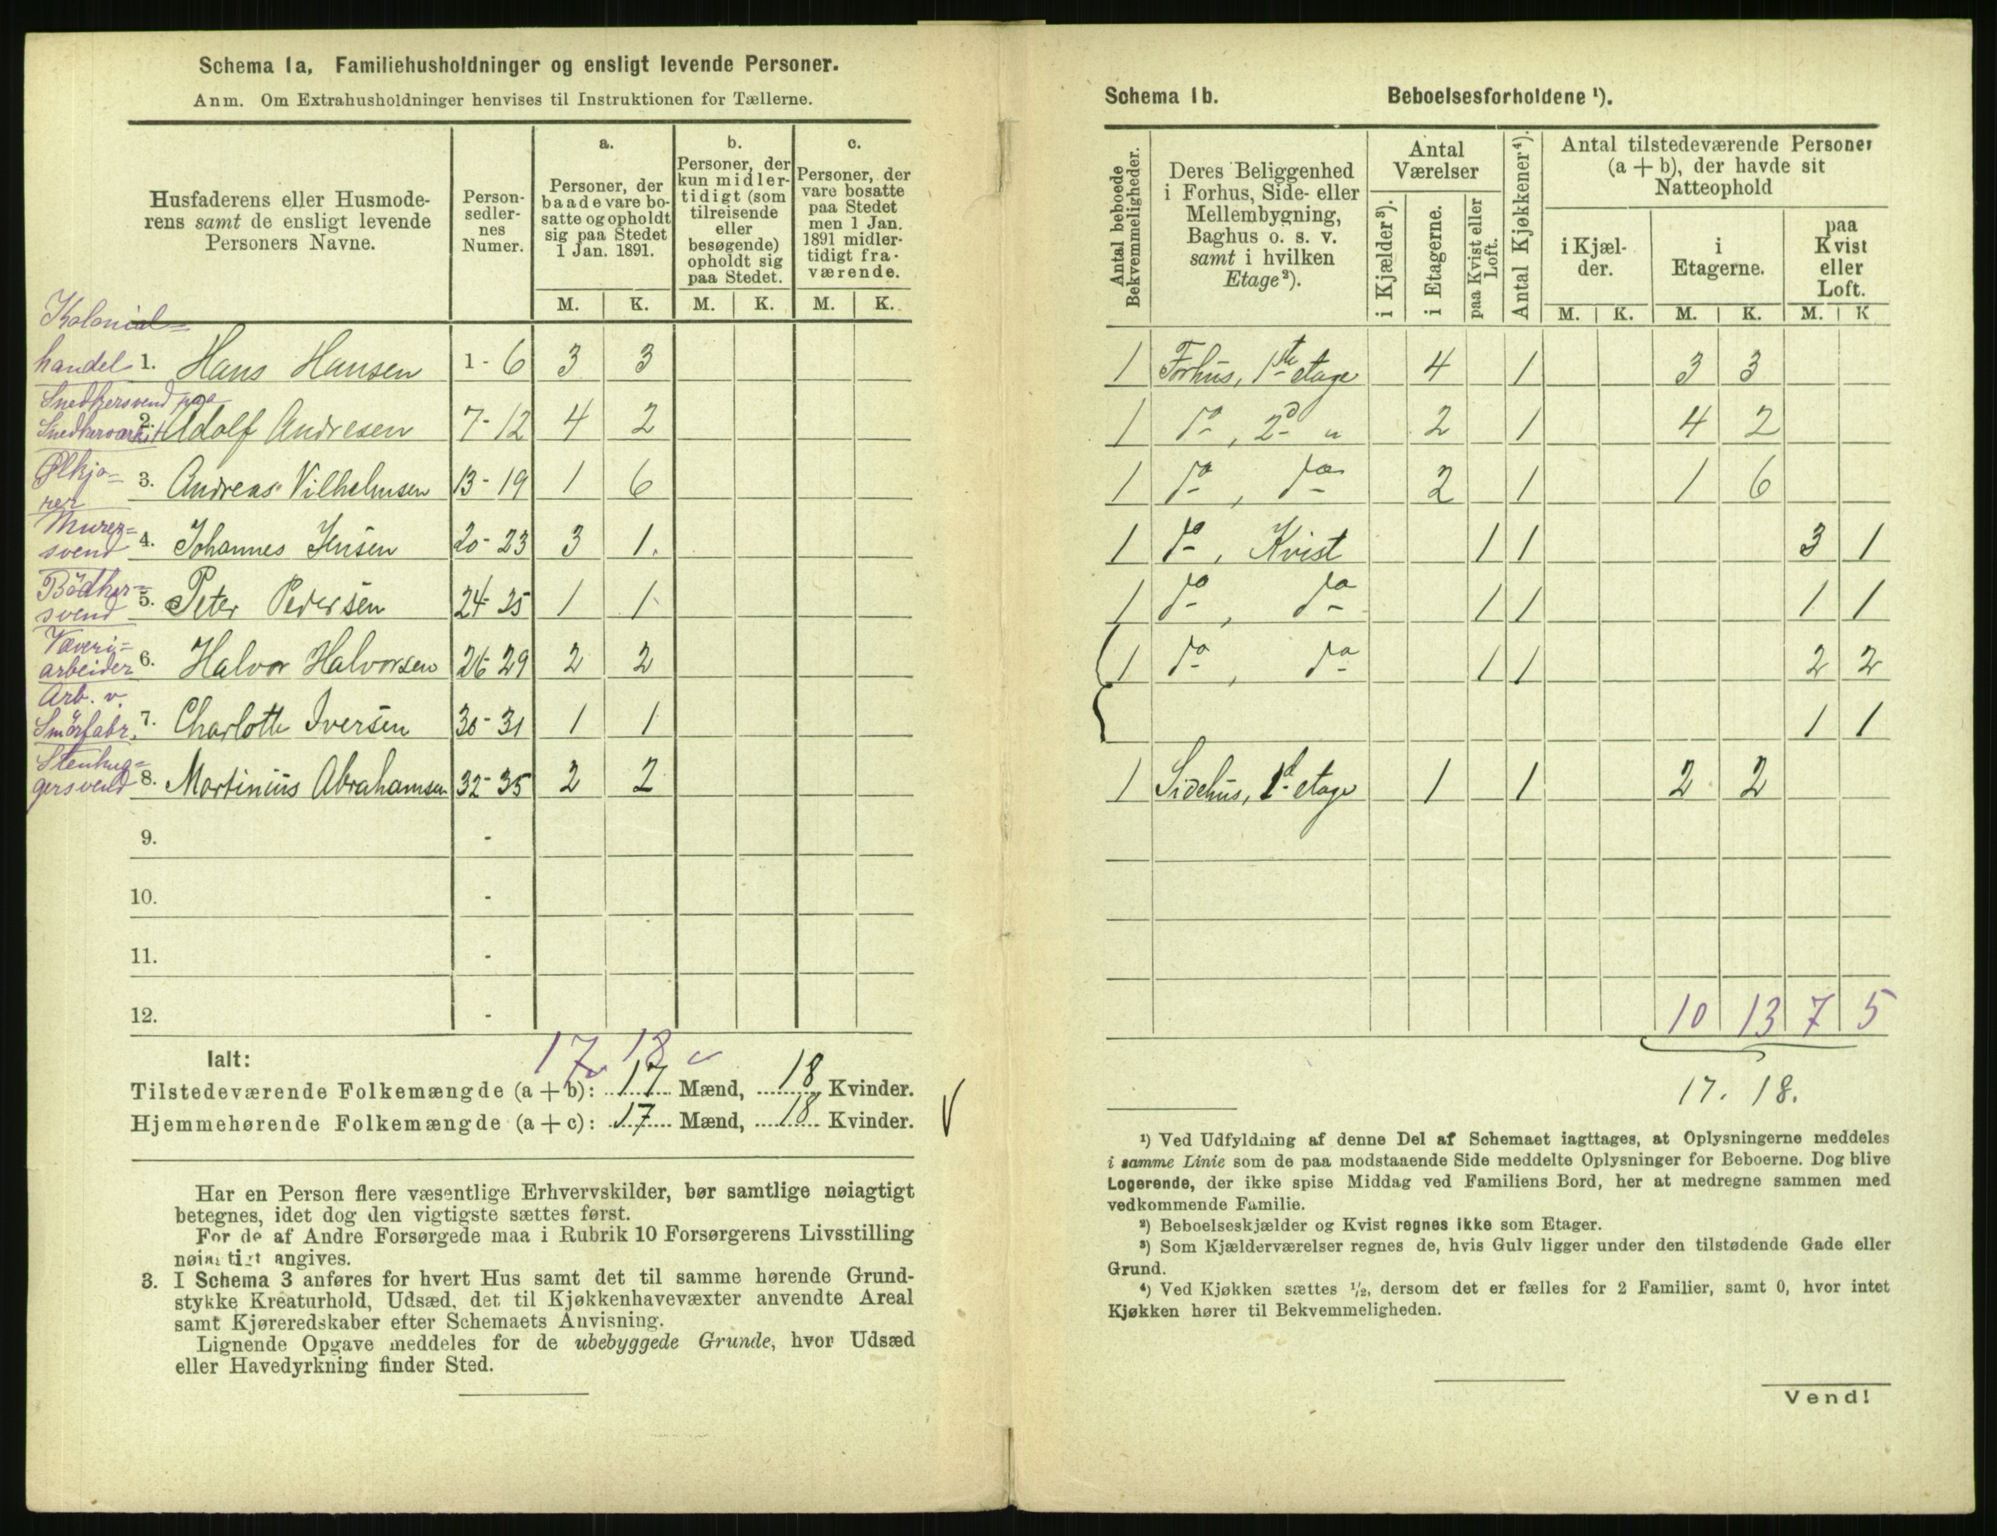 Schema 1a, Familiehusholdninger og ensligt levende Personer.
Anm. Om Extrahusholdninger henvises til Instruktionen for Tællerne.
Husfaderens eller Husmode-
rens samt de ensligt levende
Personers Navne.
Person-
sedler-
nes
Numer.
a.
Personer, der
baade vare bo-
satte og opholdt
sig paa Stedet
1 Jan. 1891.
b.
Personer, der
kun midler-
tidigt (som
tilreisende
eller
besøgende)
opholdt sig
paa Stedet.
c.
Personer, der
vare bosatte
paa Stedet
men 1 Jan.
1891 midler-
tidigt fra-
værende.
M. K. M. K. M. K.
Kolonial=
handel 1. Hans Hansen 1 - 6 3 3
Snedkersvend paa
2. Adolf Andresen 7 - 12 4 2
Ølkjø=
rer 3. Andreas Vilhelmsen 13 - 19 1 6
Murer=
svend 4. Johannes Jensen 20 - 23 3 1
Bødker=
svend 5. Peter Pedersen 24 - 25 1 1
Væveri=
arbeider 6. Halvor Halvorsen 26 - 29 2 2
Arb. v.
Smörfabr. 7. Charlotte Iversen 30 - 31 1 1
Stenhug=
gersvend 8. Martinius Abrahamsen 32 - 35 2 2
9. -
10. -
11. -
12. -
17 18
Ialt:
Tilstedeværende Folkemængde (a + b): 17 Mænd, 18 Kvinder.
Hjemmehørende Folkemængde (a + c): 17 Mænd, 18 Kvinder.
Har en Person flere væsentlige Erhvervskilder, bør samtlige nøiagtigt
betegnes, idet dog den vigtigste sættes først.
For de af Andre Forsørgede maa i Rubrik 10 Forsørgerens Livsstilling
nøiagtigt angives.
3. I Schema 3 anføres for hvert Hus samt det til samme hørende Grund-
stykke Kreaturhold, Udsæd, det til Kjøkkenhavevæxter anvendte Areal
samt Kjøreredskaber efter Schemaets Anvisning.
Lignende Opgave meddeles for de ubebyggede Grunde, hvor Udsæd
eller Havedyrkning finder Sted.
Schema 1b. Beboelsesforholdene ¹).
Antal beboede
Bekvemmeligheder.
Deres Beliggenhed
i Forhus, Side- eller
Mellembygning,
Baghus o. s. v.
samt i hvilken
Etage²).
Antal
Værelser
i Kjælder³).
i Etagerne.
paa Kvist eller
Loft.
Antal Kjøkkener⁴).
Antal tilstedeværende Personer
(a + b), der havde sit
Natteophold
i Kjæl-
der.
i
Etagerne.
paa
Kvist
eller
Loft.
M. K. M. K. M. K
1 Forhus, 1ste etage 4 1 3 3
1 do, 2d " 2 1 4 2
1 do, do 2 1 1 6
1 do, Kvist 1 1 3 1
1 do, do 1 1 1 1
1 do, do 1 1 2 2
1 1
1 Sidehus, 1st etage 1 1 2 2
10 13 7 5
17. 18.
¹) Ved Udfyldning af denne Del af Schemaet iagttages, at Oplysningerne meddeles
i samme Linie som de paa modstaaende Side meddelte Oplysninger for Beboerne. Dog blive
Logerende, der ikke spise Middag ved Familiens Bord, her at medregne sammen med
vedkommende Familie.
²) Beboelseskjælder og Kvist regnes ikke som Etager.
³) Som Kjælderværelser regnes de, hvis Gulv ligger under den tilstødende Gade eller
Grund.
⁴) Ved Kjøkken sættes ½, dersom det er fælles for 2 Familier, samt 0, hvor intet
Kjøkken hører til Bekvemmeligheden.
Vend!